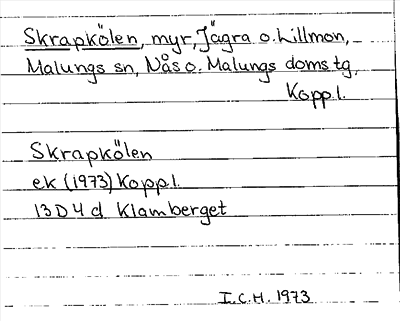 Skrapkölen, myr, Jägra o. Lillmon,
Malungs sn, Nås o. Malungs domstg,
Kopp.l.
Skrapkölen
ek (1973) Kopp.l.
13 D 4 d Klamberget
I.C.H. 1973